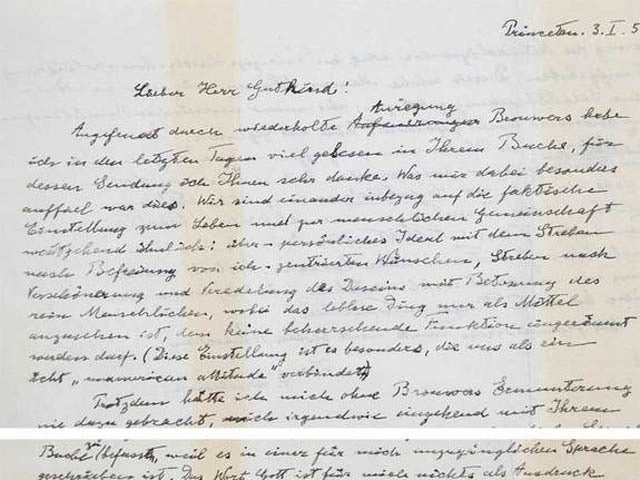 Princeton. 3. I. 5
Lieber Herr Gutkind!
Anregung
Angefeuert durch wiederholte Brouwers habe
ich in den letzten Tagen viel gelesen in Ihrem Buche, für
dessen Sendung ich Ihnen sehr danke. Was mir dabei besonders
auffiel war dies. Wir sind einander inbezug auf die faktische
Einstellung zum Leben und zur menschlichen Gemeinschaft
weitgehend ähnlich: über-persönliches Ideal mit dem Streben
nach Befreiung von ich-zentrierten Wünschen, Streben nach
Verschönerung und Veredelung des Daseins mit Betonung des
rein Menschlichen, wobei das leblose Ding nur als Mittel
anzusehen ist, dem keine beherrschende Funktion eingeräumt
werden darf. (Diese Einstellung ist es besonders, die uns als ein
ächt "unamerican attitude" verbindet)
Trotzdem hätte ich mich ohne Brouwers Ermunterung
nie dazu gebracht, mich irgendwie eingehend mit Ihrem
Buche zu befassen, weil es in einer für mich unzugänglichen Sprache
geschrieben ist. Das Wort Gott ist für mich nichts als Ausdruck